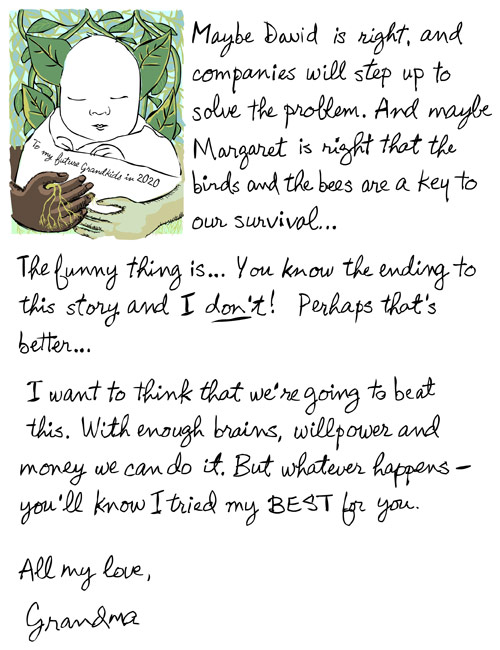 To my future Grandkids in 2020
Maybe David is right, and
companies will step up to
solve the problem. And maybe
Margaret is right that the
birds and the bees are a key to
our survival...
The funny thing is... You know the ending to
this story and I don't! Perhaps that's
better...
I want to think that we're going to beat
this. With enough brains, willpower and
money we can do it. But whatever happens –
you'll know I tried my BEST for you.
All my love,
Grandma